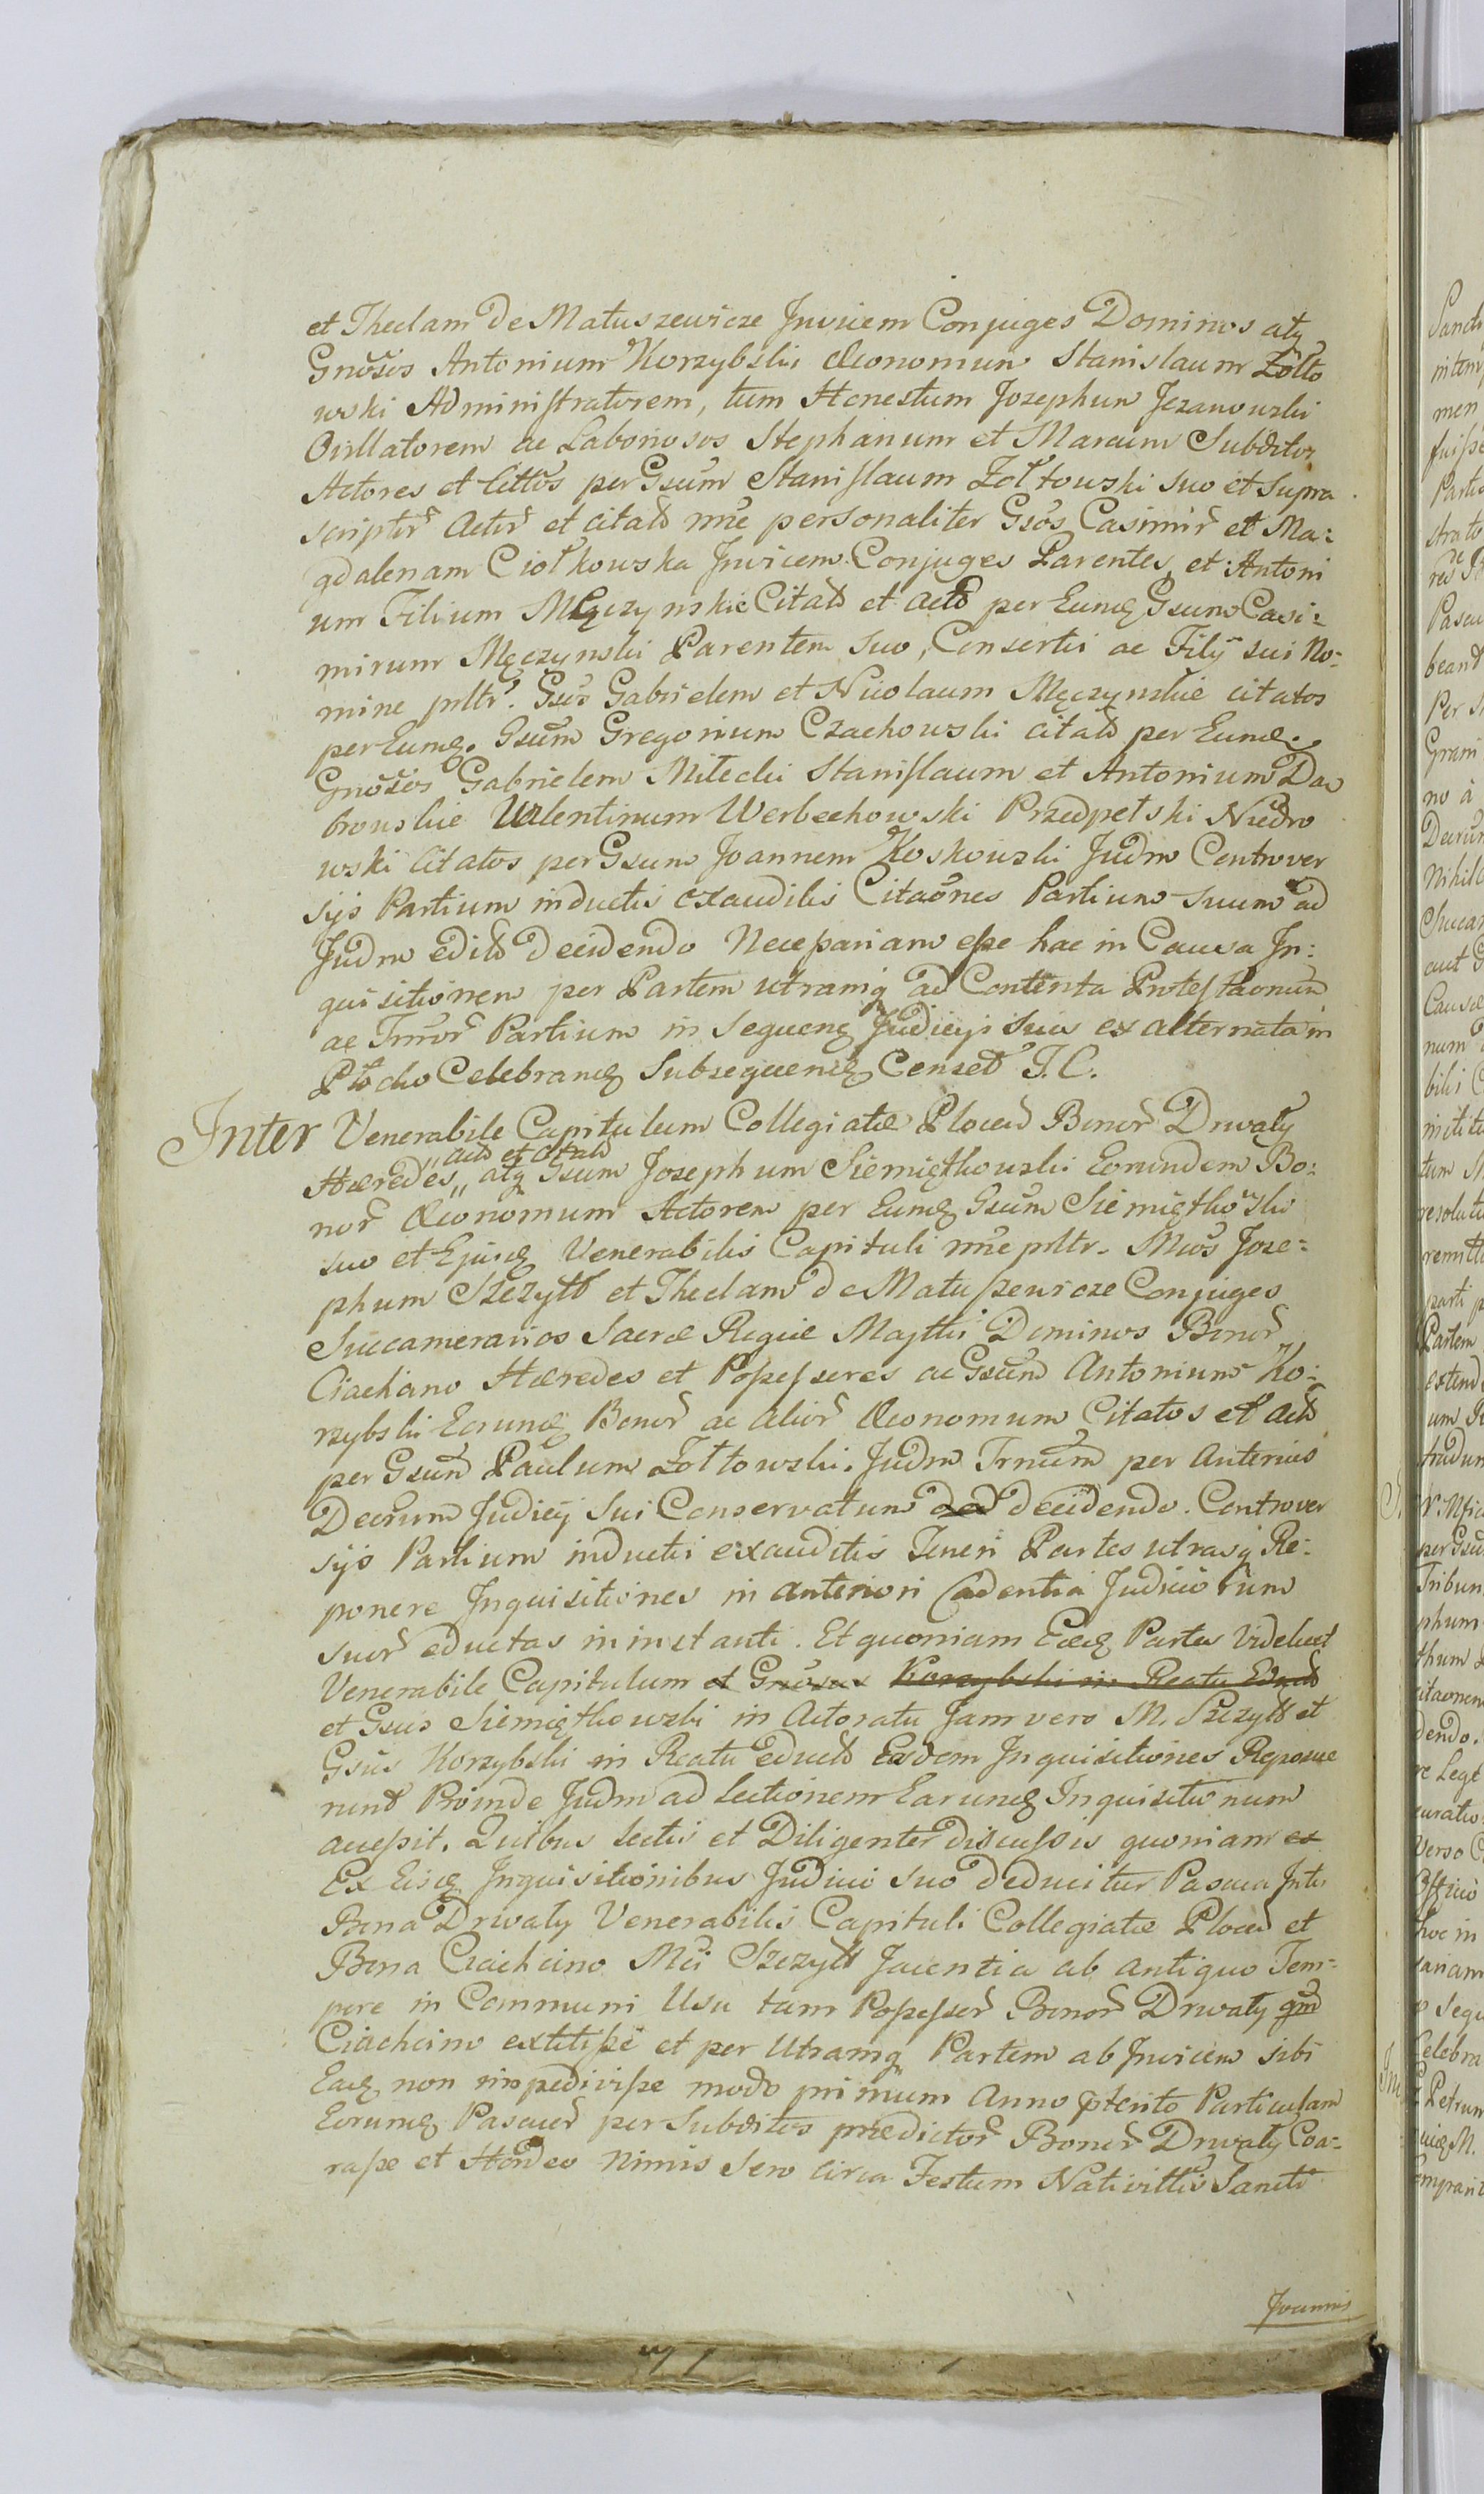 et Theclam De Matuszewicze Invicem Conjuges Dominos atq
Gnosos Antonium Korzybski Œconomum Stanislaum Zółto
wski Administratorem, tum Honestum Josephum Jezanowski
ac Laboriosos Stephanum et Marcum Subditos
Actores et Cittos per Gsum Stanislaum Zołtowski suo et supra
scriptr Actr et citatd nne personaliter Gsos Casimir et Ma:
gdalenam Ciołkowska Invicem Conjuges Parentes et Antoni
um Filium Męczynskie Citatd et actd per Eumq Gsum Casi:
mirum Męczynski Parentem suo, Consortis ac Filij sui No:
mine plltr. Gsos Gabrielem et Nicolaum Męczynskie citatos
per Eumq. Gsum Gregorium Czachowski citatd per Eumq.
Gnosos Gabrielem Milecki Stanislaum et Antonium Da
browskie Valentinum Werbechowski Przedpełski Niedro
wski Citatos per Gsum Joannem Koskowski Judm Controver
sijs Partium inductis exauditis Citaones Partium suum ad
Judm editd decidendo Necessariam esse hac in Causa In:
quisitionem per Partem utramq ad Contenta Protestaonum
ac Partium in sequenq Judicijs suis ex alternata in
Płocko Celebranq Subsequenq Censet J. C.
Inter Venerabile Capitulum Collegiatæ Plocen Bonor Drwały
actd et citatd
Hæredes,, atq Gsum Josephum Siemiątkowski Eorundem Bo:
nor Œconomum Actorem per Eumq Gsum Siemiątkowski
suo et Ejusq Venerabilis Capituli nne plltr. Mcos Jose:
phum Szczytt et Theclam de Matuszewicze Conjuges
Succamerarios Sacræ Regiæ Majttis Dominos Bonor
Ciachcino Hæredes et Possessores ac Gsum Antonium Ko:
rzybski Eorunq Bonor ac alior Œconomum Citatos et actd
per Gsum Paulum Zołtowski. Judm Trnum per Anterius
Decrum Judicij Sui Conservatum decidendo. Controver
sijs Partium inductis exauditis Teneri Partes utrasq Re:
ponere Inquisitiones in anteriori Cadentia Judiciorum
suor eductas in instanti. Et quoniam Eædq Partes Videlicet
Venerabile Capitulum et Gnosus Korzybski in Reatu Eductd
et Gsus Siemiątkowski in Actoratu Jam vero M. Szczytt et
Gsus Korzybski in Reatu eductd Easdem Inquisitiones Reposue
runt Proinde Judm ad lectionem Earunq Inquisitionum
accessit. Quibus lectis et Diligenter discussis quoniam ex
Ex Eisq Inquisitionibus Judicio suo deducitur Pascua Inter
Bona Drwały Venerabilis Capituli Collegiatæ Plocen et
Bona Ciachcino Mci Szczytt Jacentia ab antiquo Tem:
pore in Communi Usu tam Possessor Bonor Drwały qm
Ciachcino extitisse et per Utramq Partem ab Invicem sibi
Eaq non impedivisse modo primum Anno pterito Particulam
Eorumq Pascuor per Subditos prædictor Bonor Drwały Coa:
rasse et Hordeo Nimis Sero circa Festum Nativittis Sancti
Joannis